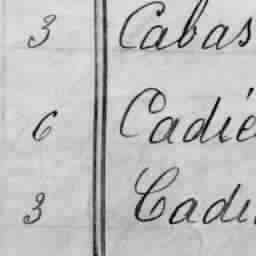 3 Cabas
6 Cadié
3 Cadi